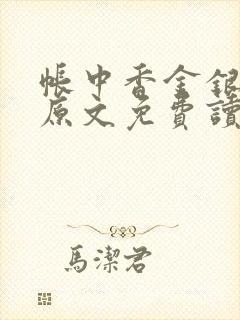 帳中香金銀
原文免費讀
馬潔君